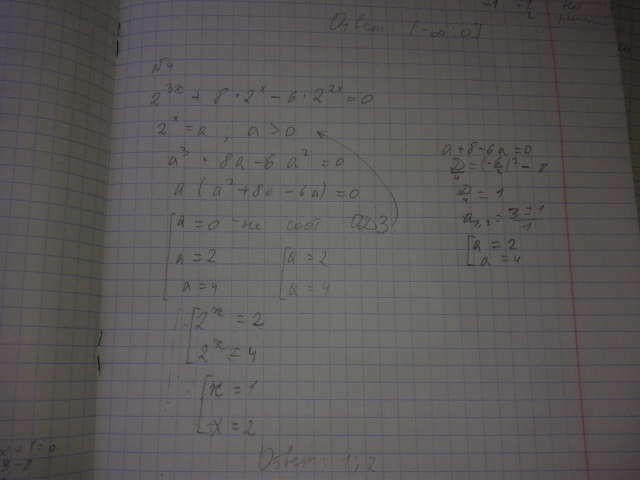 Ответ: (-∞; 0]
№4
2^3x + 8 · 2^x - 6 · 2^2x = 0
2^x = a , a > 0
a^3 + 8a - 6 a^2 = 0
a ( a^2 + 8a - 6a ) = 0
a = 0 - не соот
a = 2
a = 4
a = 2
a = 4
2^x = 2
2^x = 4
x = 1
x = 2
Ответ: 1; 2
a + 8 - 6a = 0
D/4 = (-6/2)^2 - 8
D/4 = 1
a1,2 = 3 ± 1 / 1
a = 2
a = 4